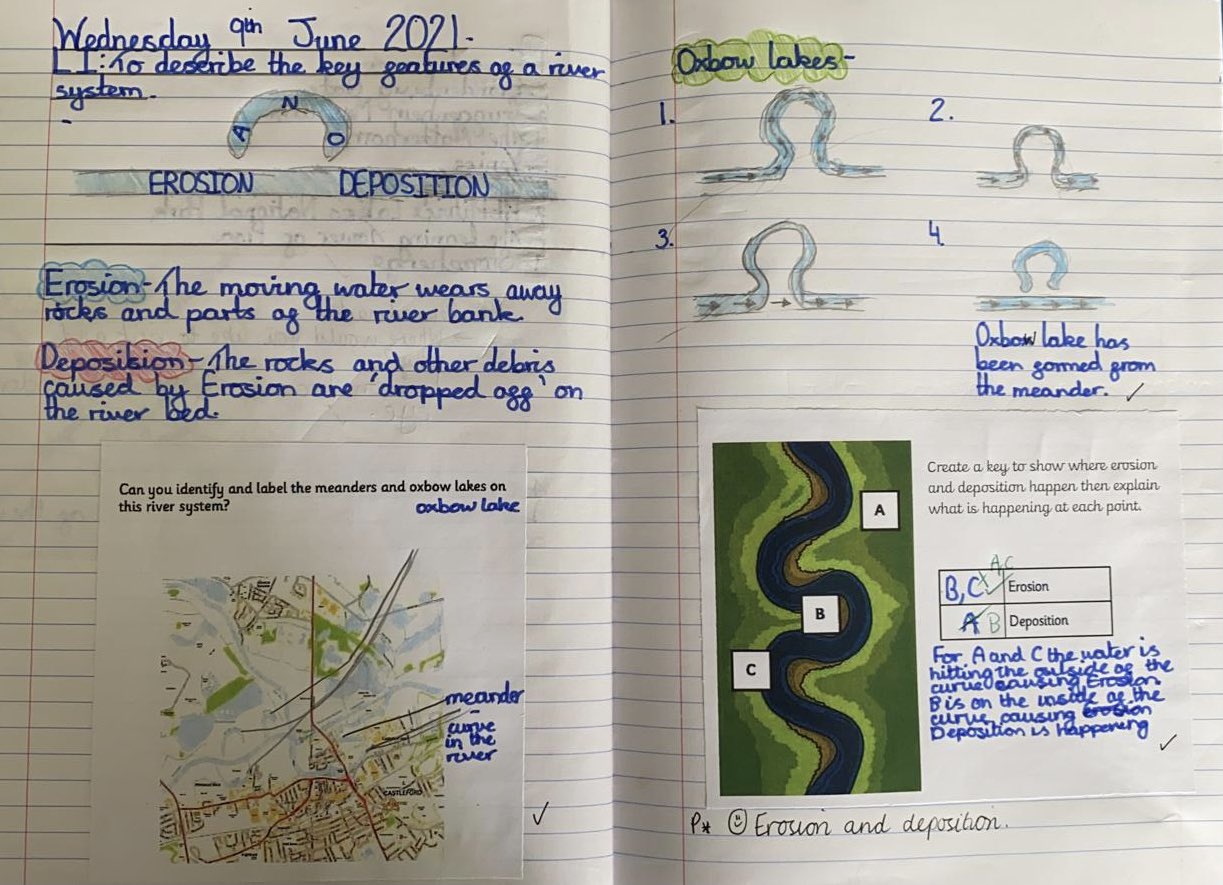 Wednesday 9th June 2021.
LI: To describe the key features of a river
system.
A N O
EROSION DEPOSITION
Erosion - The moving water wears away
rocks and parts of the river bank.
Deposition - The rocks and other debris
caused by Erosion are 'dropped off' on
the river bed.
Can you identify and label the meanders and oxbow lakes on
this river system?
oxbow lake
meander
curve
in the
river
CASTLEFORD
Oxbow lakes -
1. 2.
3. 4.
Oxbow lake has
been formed from
the meander.
A
B
C
Create a key to show where erosion
and deposition happen then explain
what is happening at each point.
A,C
B,C Erosion
A B Deposition
For A and C the water is
hitting the outside of the
curve causing Erosion
B is on the inside of the
curve, causing erosion
Deposition is Happening
P* Erosion and deposition.